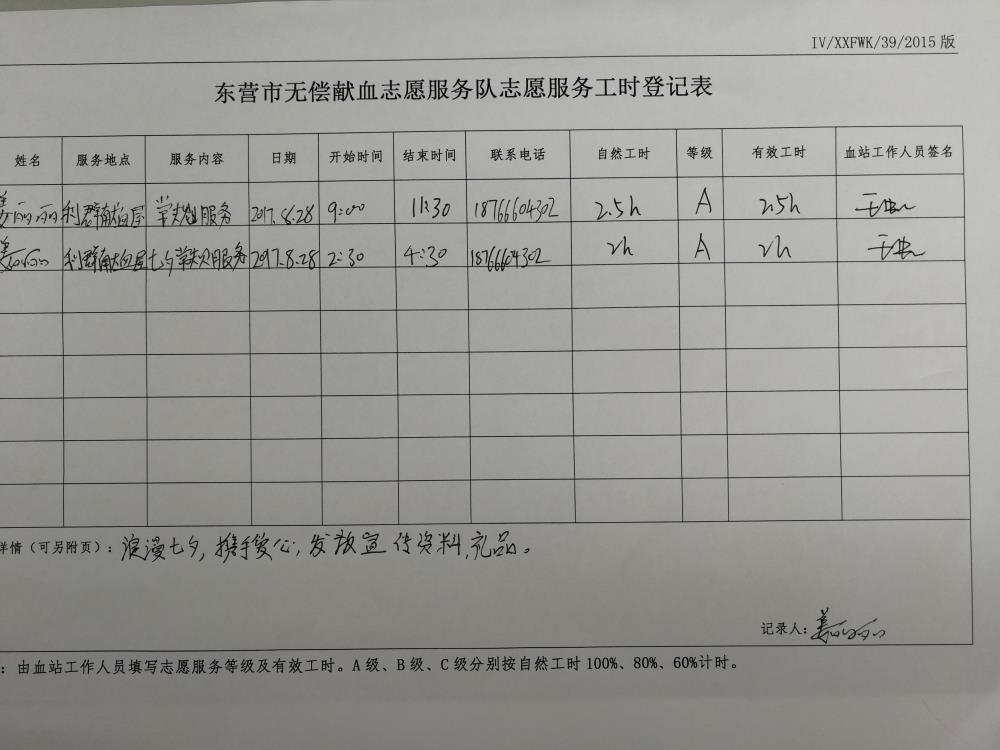 IV/XXFWK/39/2015 版
东营市无偿献血志愿服务队志愿服务工时登记表
姓名 服务地点 服务内容 日期 开始时间 结束时间 联系电话 自然工时 等级 有效工时 血站工作人员签名
姜丽丽 利群献血屋 服务 2017.8.28 9:00 11:30 18766604302 2.5h A 2.5h
姜丽丽 利群献血屋 七夕 服务 2017.8.28 2:30 4:30 18766604302 2h A 2h
详情（可另附页）：浪漫七夕，携手爱心，发放宣传资料，礼品。
记录人：姜丽丽
：由血站工作人员填写志愿服务等级及有效工时。A 级、B 级、C 级分别按自然工时 100%、80%、60%计时。